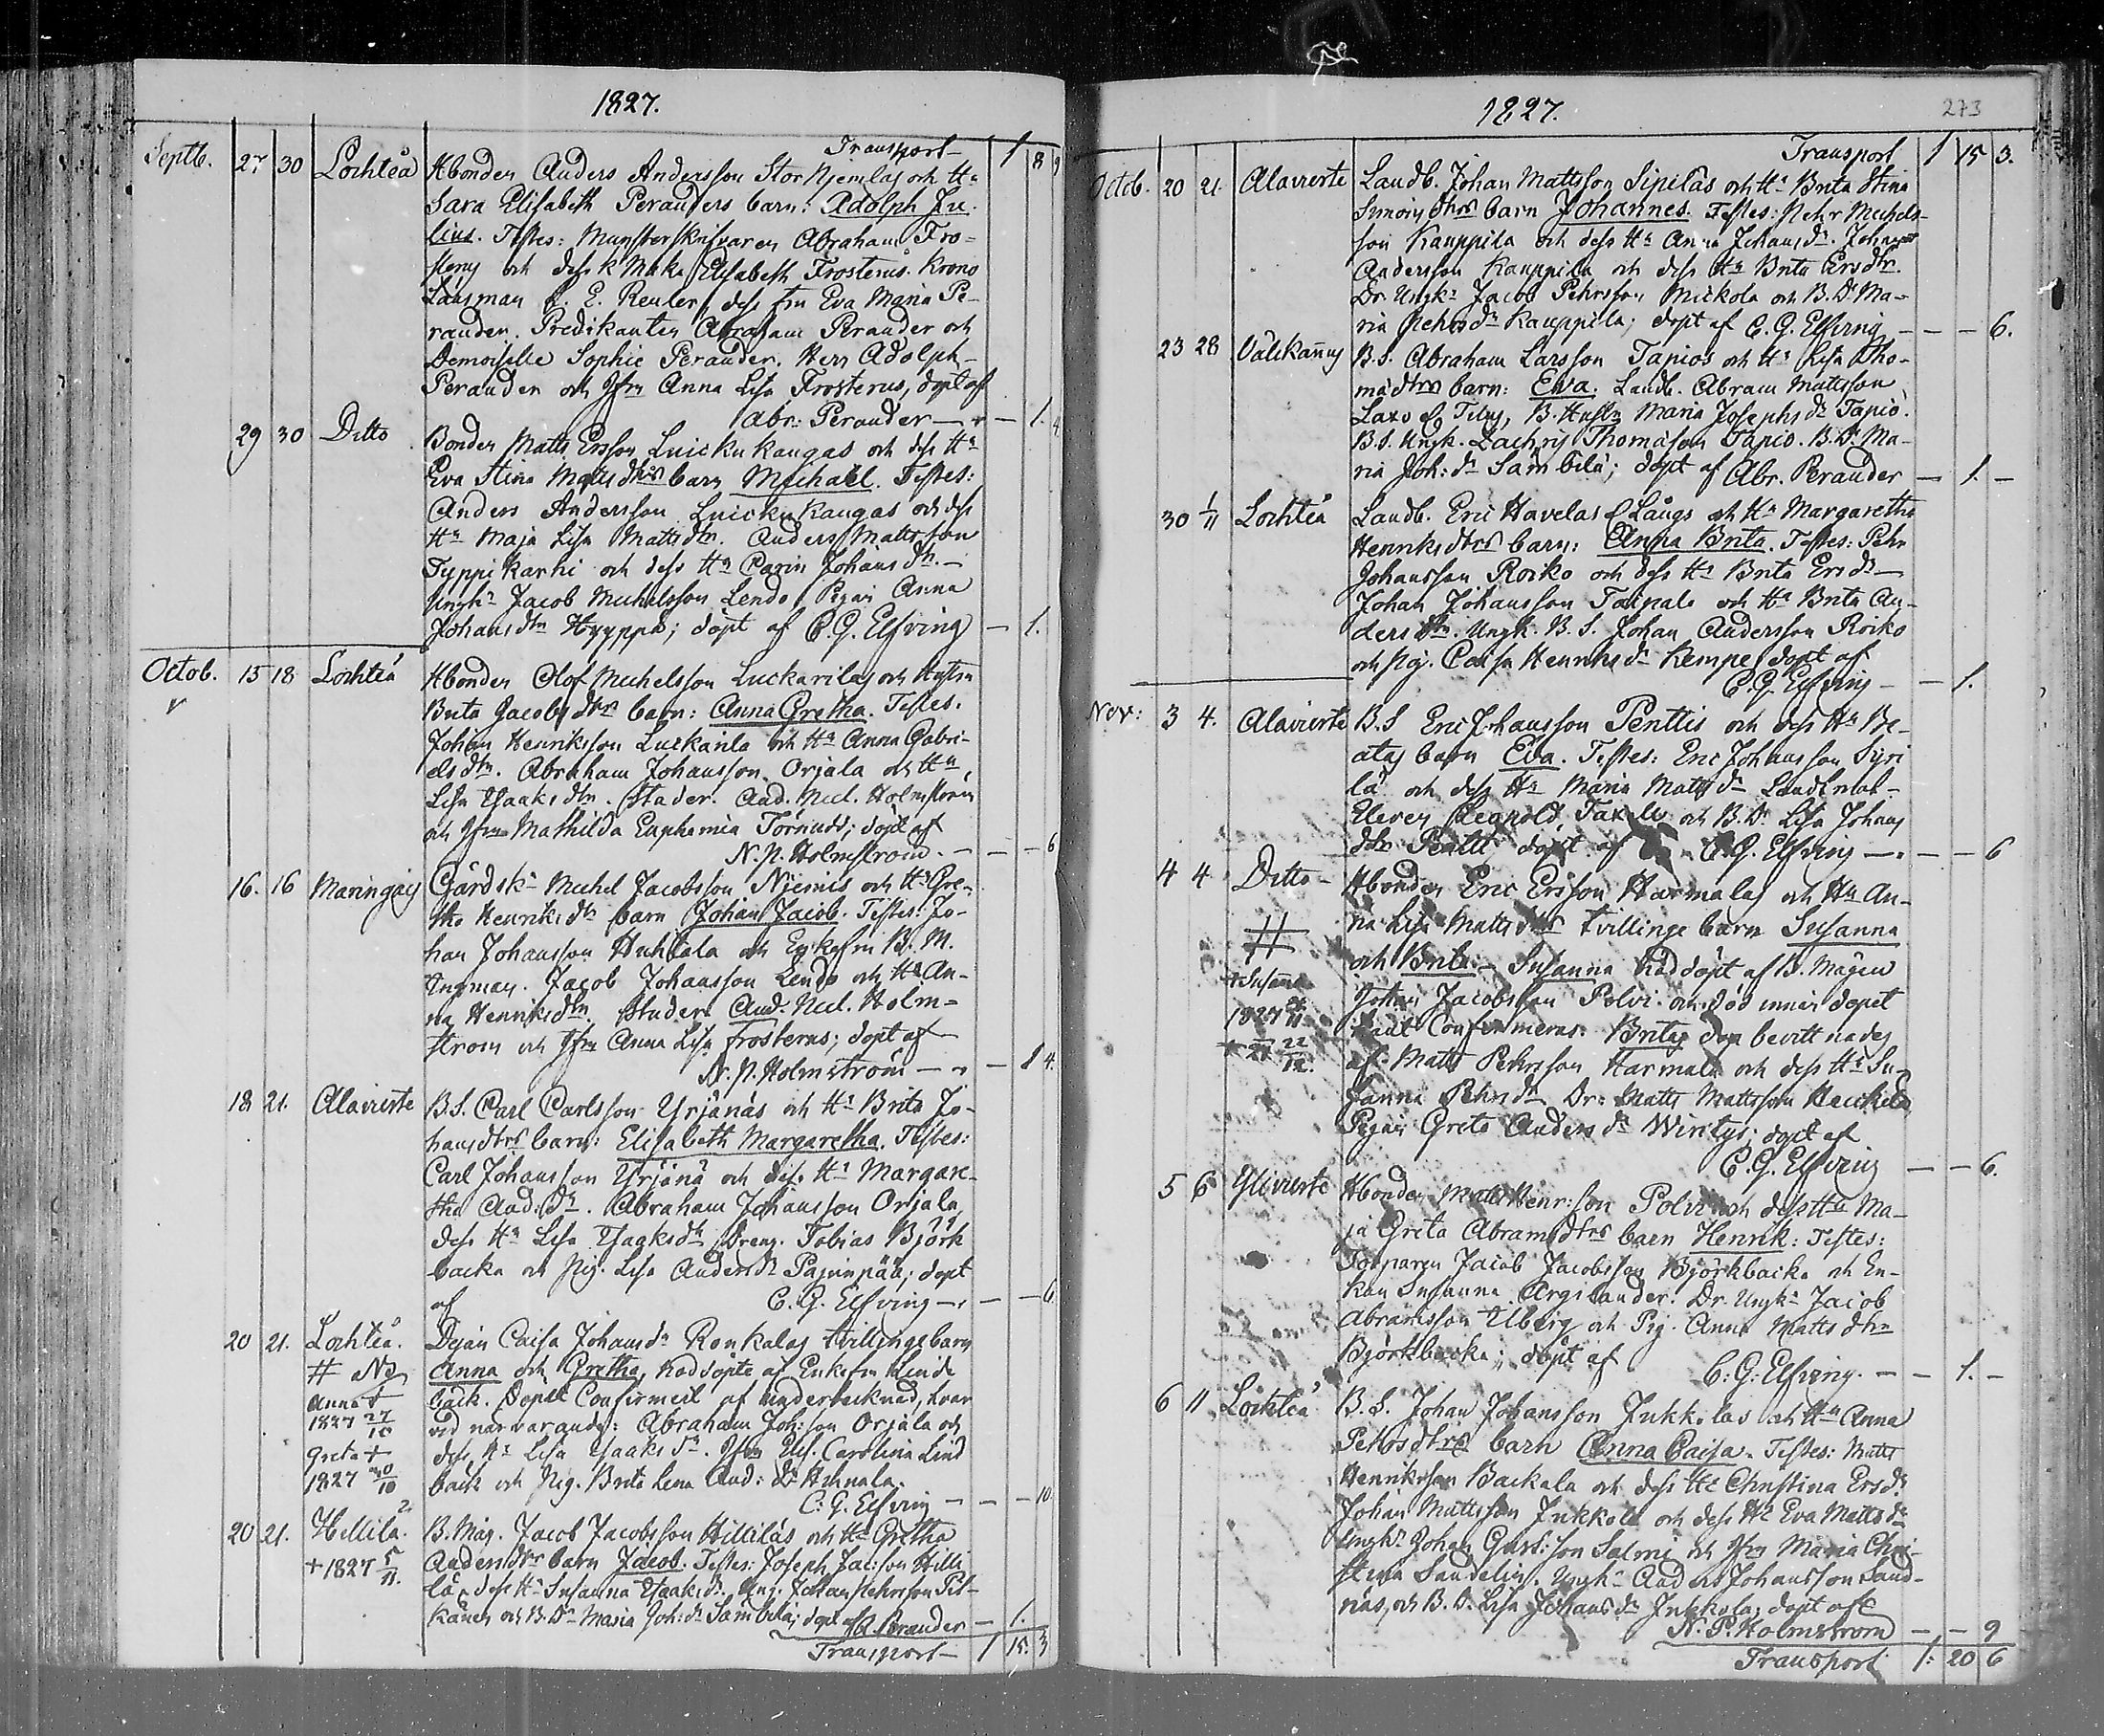 1827.
Transport 1 8 9
Septb. 27 30 Lochteå Hbonden Anders Andersson Stor Njemlas och Hu
Sara Elisabeth Peranders barn: Adolph Ju-
lius. Testes: Munsterskrifvaren Abraham Fro-
sterus och dess k Maka Elisabeth Frosterus. Krono
Länsman E. E. Reuter, dess fru Eva Maria Pe-
rander. Predikanten Abraham Perander och
Demoiselle Sophie Perander. Herr Adolph
Perander och Jfru Anna Lisa Frosterus, döpt af
Abr: Perander — 1. 4
29 30 Ditto Bonden Matts Ersson Luickukangas och dess Hu
Eva Stina Mattsdtrs barn Michaël. Testes:
Anders Andersson Luickukangas och dess
Hu Maja Lisa Mattsdtr. Anders Mattsson
Typpikarhi och dess Hu Carin Johansdtr. —
Ungk. Jacob Michelsson Lendo, Pigan Anna
Johansdtr Hyyppä; döpt af C. G. Elfving — 1.
Octob. 15 18 Lochteå Hbonden Olof Michelsson Luckarilas och Hustru
Brita Jacobsdtrs barn: Anna Gretha. Testes.
Johan Henriksson Luckarila och Hu Anna Gabri-
elsdtr. Abraham Johansson Orjala och Hu
Lisa Isaaksdtr. Stader. And. Nicl. Holmström
och Jfru Mathilda Euphemia Törnudd; döpt af
N. P. Holmström. — — 6
16. 16 Maringais Gårdsk. Michel Jacobsson Njemis och Hu Gre-
tha Henriksdtr barn Johan Jacob. Testes: Jo-
han Johansson Huhtala och Enkefru B. M.
Ingman. Jacob Johansson Lendo och Hu An-
na Henriksdtr. Studer. And. Nicl. Holm-
ström och Jfru Anna Lisa Frosterus; döpt af
N. P. Holmström — — 1 4.
18 21. Alavirete B. S. Carl Carlsson Yrjänäs och Hu Brita Jo-
hansdtrs barn: Elisabeth Margaretha. Testes:
Carl Johansson Yrjänä och dess Hu Margare-
tha And: dr. Abraham Johansson Orjala,
dess Hu Lisa Isaaksdtr, Dreng. Tobias Björk
backa och Pig. Lisa Andersdr Pajunpää; döpt
af C. G. Elfving — — 6.
20 21. Lochteå. Pigan Caisa Johansdr Ronkalas tvillingebarn
# No Anna och Gretha, nöddöpte af Enkefru Lind
Anna + bäck. Dopet Confirmeit af undertecknad, hvar
1827 27/10 vid närvarande: Abraham Joh:son Orjala och
Greta + dess Hu Lisa Isaaksdr. Jfru Elis. Carolina Lind
1827 30/10 bäck och Pig. Brita Lena And: dr Ahnala.
C. G. Elfving — — 10.
20 21. Hillilä. B. Måg. Jacob Jacobsson Hilliläs och Hu Gretha
+ 1827 5/11. Andersdtrs barn Jacob. Testes: Joseph Jac:son Hilli
lä dess Hu Susanna Isaaksdr. Ung. Johan Pehrsson Pit-
känen och B. Dr Maria Joh:dr Sämbilä; döpt af A. Perander — 1.
Transport — 1 15. 3
1827. 273
Transport 1 15 3.
Octob. 20 21. Alavirete Landb. Johan Mattsson Sipiläs och Hu Brita Stina
Simonsdtrs barn Johannes. Testes: Pehr Michels-
son Kauppila och dess Hu Anna Johansdr. Johan
Andersson Kauppila och dess Hu Brita Ersdtr.
Dr. Ungk. Jacob Pehrsson Mickola och B. Dr Ma-
ria Pehrsdr Kauppila; döpt af C. G. Elfving — — 6.
23 28 Välikannus B. S. Abraham Larsson Tapios och Hu Lisa Tho-
mædtrs barn: Eva. Landb. Abram Mattsson
Laxo Tilus, B. Hustru Maria Josephsdr Tapio.
B. S. Ungk. Zachris Thomasson Tapio. B. Dr Ma-
ria Joh: dr Sämbilä; döpt af Abr. Perander — 1. —
30 1/11 Lochteå Landb. Eric Havelas Långs och Hu Margaretha
Henriksdtrs barn: Anna Brita. Testes: Pehr
Johansson Roiko och dess Hu Brita Ersdr —
Johan Johansson Taipale och Hu Brita An-
dersdtr. Ungk. B. S. Johan Andersson Roiko
och Pig. Caisa Henriksdr Kempe, döpt af
C. G. Elfving — 1.
Nov: 3 4. Alavirete B. S Eric Johansson Penttis och dess Hu Be-
atas barn Eva. Testes: Eric Johansson Syri
lä och dess Hu Maria Mattsdr Landtmät-
Eleven Leopold Taxell och B. Dr Lisa Johans
dtr Pentti döpt af C. G. Elfving — — 6
4 4 Ditto — Hbonden Eric Ersson Harmalas och Hu An-
# na Lisa Mattsdtrs tvillinge barn Susanna
och Brita. — Susanna nöddöpt af B. Mågen
+ Susanna Johan Jacobsson Polvi och död innan dopet
1827 4/11 hant Confirmeras. Britas dop bevittnades
+ 27 22/12. af: Matts Pehrsson Harmala och dess Hu Su-
sanna Pehrsdr Dr: Matts Mattsson Heickilä
Pigan Greta Andersdr Wirtys; döpt af
C. G. Elfving — — 6.
5 6 Ylivirete Hbonden Matts Henr:son Polvi och dess Hu Ma-
ja Greta Abramsdtrs barn Henrik: Testes:
Torparen Jacob Jacobsson Björkbacka och En-
kan Susanna Argilander. Dr. Ungk. Jacob
Abramsson Elberg och Pig. Anna Mattsdtr
Björkbacka; döpt af C: G: Elfving. — — 1. —
6 11 Lochteå B. S. Johan Johansson Jukkolas och Hu Anna
Pehrsdtrs barn Anna Caisa. Testes: Matts
Henriksson Backala och dess Hu Christina Ersdr
Johan Mattsson Jukkola och dess Hu Eva Mattsdr
Ungk. Johan Gust:son Salmi och Jfru Maria Chri-
stina Sandelin. Ungk. Anders Johansson Sand-
näs, och B. D. Lisa Johansdr Jukkola; döpt af
N. P. Holmström — — 9
Transport 1: 20 6